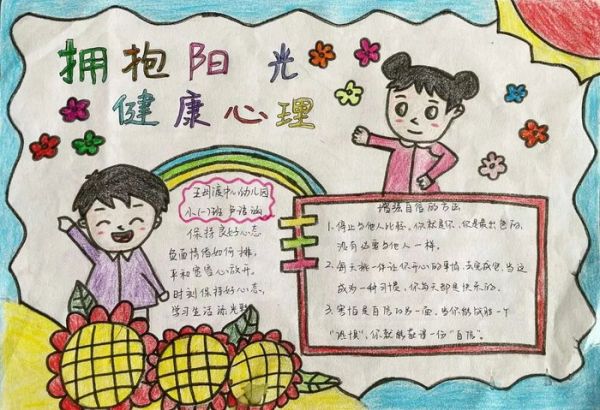 拥抱阳光
健康心理
王刘渡中心幼儿园
小(一)班
保持良好心态
负面情绪如何排,
平和雪雪心放开。
时刻保持好心态,
学习生活添光彩
增强自信的方法
1.停止与他人比较,你就是你,你是最出色的,
没有必要与他人一样。
2.每天挑一件让你开心的事情,去完成它,当这
成为一种习惯,你每天都是快乐的。
3.害怕是自信的另一面,当你能战胜一个
"恐惧",你就能获得一份"自信"。